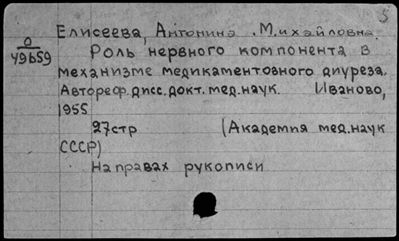 5
Елисеева, Антонина Михайловна.
О
49659
Роль нервного компонента в
механизме медикаментозного диуреза.
Автореф.дисс.докт.мед.наук. Иваново,
1955
27стр (Академия мед.наук
СССР)
На правах рукописи